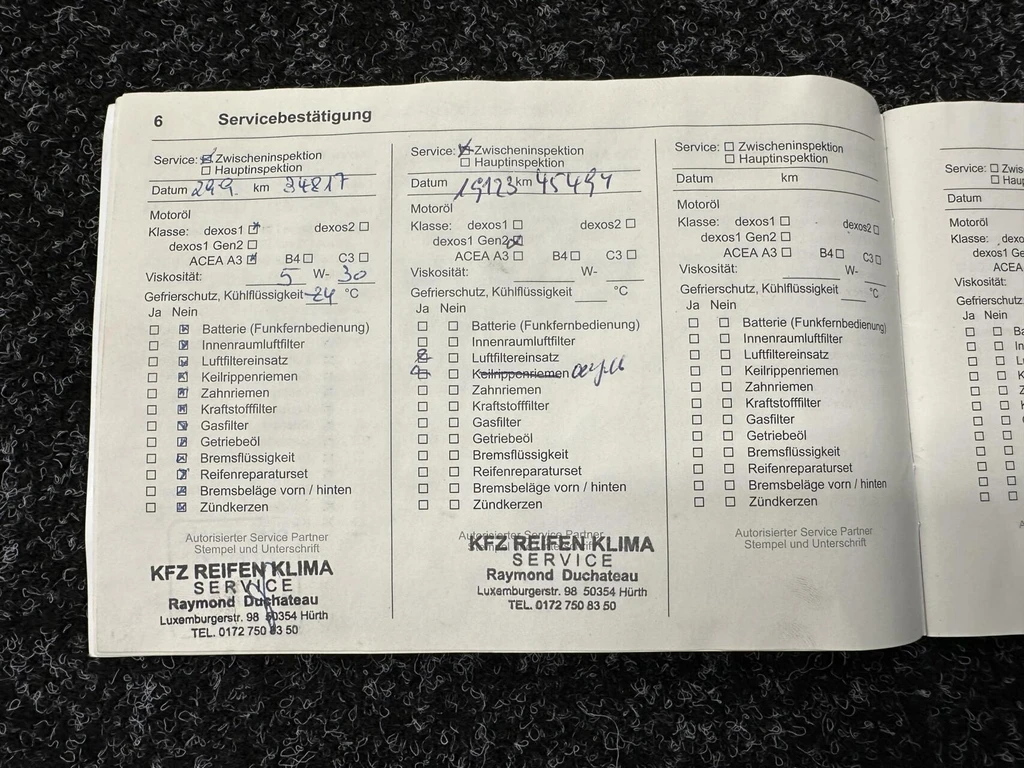 6 Servicebestätigung
Service: Zwischeninspektion
Hauptinspektion
Datum 29.9. km 34817
Motoröl
Klasse: dexos1 dexos2
dexos1 Gen2
ACEA A3 B4 C3
Viskosität: 5 W- 30
Gefrierschutz, Kühlflüssigkeit -24 °C
Ja Nein
Batterie (Funkfernbedienung)
Innenraumluftfilter
Luftfiltereinsatz
Keilrippenriemen
Zahnriemen
Kraftstofffilter
Gasfilter
Getriebeöl
Bremsflüssigkeit
Reifenreparaturset
Bremsbeläge vorn / hinten
Zündkerzen
Autorisierter Service Partner
Stempel und Unterschrift
KFZ REIFEN KLIMA
SERVICE
Raymond Duchateau
Luxemburgerstr. 98 50354 Hürth
TEL. 0172 750 83 50
Service: Zwischeninspektion
Hauptinspektion
Datum km
Motoröl
Klasse: dexos1 dexos2
dexos1 Gen2
ACEA A3 B4 C3
Viskosität: W-
Gefrierschutz, Kühlflüssigkeit °C
Ja Nein
Batterie (Funkfernbedienung)
Innenraumluftfilter
Luftfiltereinsatz
Keilrippenriemen
Zahnriemen
Kraftstofffilter
Gasfilter
Getriebeöl
Bremsflüssigkeit
Reifenreparaturset
Bremsbeläge vorn / hinten
Zündkerzen
Autorisierter Service Partner
KFZ REIFEN KLIMA
SERVICE
Raymond Duchateau
Luxemburgerstr. 98 50354 Hürth
TEL. 0172 750 83 50
Service: Zwischeninspektion
Hauptinspektion
Datum km
Motoröl
Klasse: dexos1 dexos2
dexos1 Gen2
ACEA A3 B4 C3
Viskosität: W-
Gefrierschutz, Kühlflüssigkeit °C
Ja Nein
Batterie (Funkfernbedienung)
Innenraumluftfilter
Luftfiltereinsatz
Keilrippenriemen
Zahnriemen
Kraftstofffilter
Gasfilter
Getriebeöl
Bremsflüssigkeit
Reifenreparaturset
Bremsbeläge vorn / hinten
Zündkerzen
Autorisierter Service Partner
Stempel und Unterschrift
Service: Zwis
Hau
Datum
Motoröl
Klasse: dexo
dexos1 Ge
ACEA
Viskosität:
Gefrierschutz
Ja Nein